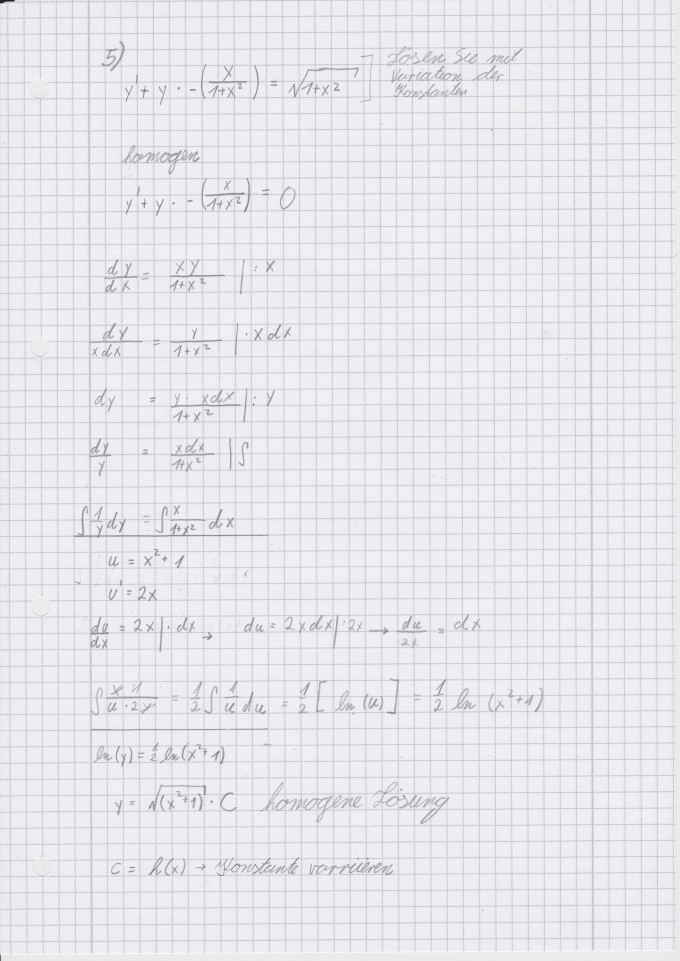 5)
y' + y · -(x/(1+x²)) = √(1+x²) ] Lösen Sie mit
Variation der
Konstanten
homogen
y' + y · -(x/(1+x²)) = 0
dy/dx = xy/(1+x²) | : x
dy/(x dx) = y/(1+x²) | · x dx
dy = (y · xdx)/(1+x²) | : y
dy/y = xdx/(1+x²) | ∫
∫ 1/y dy = ∫ x/(1+x²) dx
u = x² + 1
u' = 2x
du/dx = 2x | · dx → du = 2x dx | : 2x → du/2x = dx
∫ (x · 1)/(u · 2x) = 1/2 ∫ 1/u du = 1/2 [ ln (u) ] = 1/2 ln (x²+1)
ln(y) = 1/2 ln(x²+1)
y = √(x²+1) · C homogene Lösung
C = h(x) → Konstante varriieren